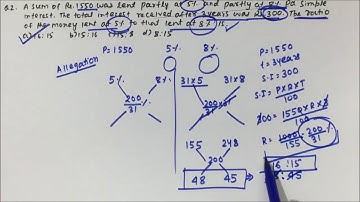 Q2. A sum of Rs.1550 was lent partly at 5% and partly at 8% Pa Simple
interest. The total interest received after 3 years was Rs 300. The ratio
of the money lent at 5% to that lent at 8% is.
a) 16:15 b) 15:16 c) 15:8 d) 8:15
Allegation
P=1550
5% 8%
5% 8%
200/31
31x5 31x8
200/31 x31
155 248
200
48 45
P=1550
t=3 years
S.I=300
S.I= PXRXT/100
300= 1550XRX3/100
R= 1000/155 = 200/31 %
16:15
48:45